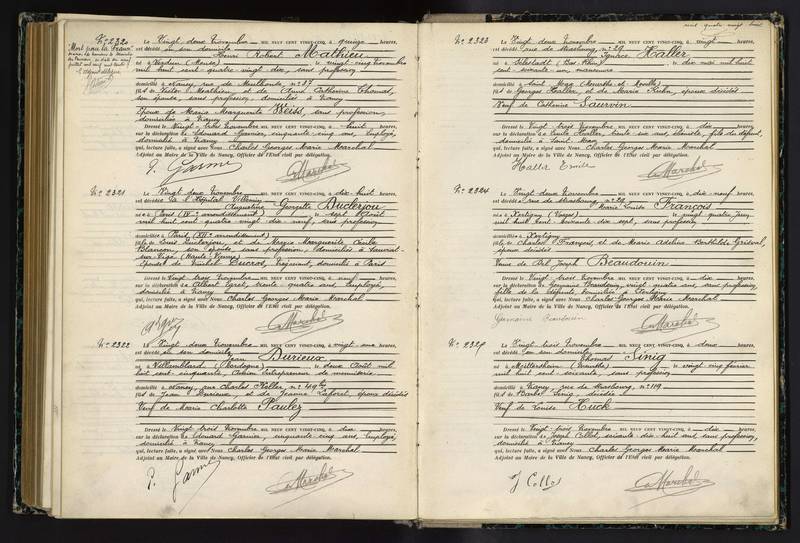 N° 2320
"Mort pour la France"
Le Vingt-deux Novembre MIL NEUF CENT VINGT-CINQ, à quinze heures,
est décédé en son domicile
Henri Robert Mathieu
né à Verdun (Meuse) le vingt-cinq Novembre
mil huit cent quatre-vingt-dix, sans profession
domicilié à Nancy, rue de n° 37
fils de Victor Mathieu et de Anna Catherine Thomas,
son épouse, sans profession, domiciliés à Nancy
Époux de Marie Marguerite Weiss, sans profession,
domiciliée à Nancy
Dressé le Vingt-trois Novembre MIL NEUF CENT VINGT-CINQ, à huit heures,
sur la déclaration de Edouard Garnier, cinquante-cinq ans, Employé,
domicilié à Nancy
qui, lecture faite, a signé avec Nous Charles Georges Marie Marchal
Adjoint au Maire de la Ville de Nancy, Officier de l'État civil par délégation.
N° 2321
Le Vingt-deux Novembre MIL NEUF CENT VINGT-CINQ, à dix-huit heures,
est décédée à l'Hôpital Villemin
Augustine Georgette Duclerjou
née à Paris (arrondissement) le sept Août
mil huit cent quatre-vingt-dix-neuf, sans profession
domiciliée à Paris (XIIe arrondissement)
fille de Louis Duclerjou, et de Marie Marguerite
son épouse, sans profession, domiciliés à
(Haute-Vienne)
Épouse de Ducros, Négociant, domicilié à Paris
Dressé le Vingt-trois Novembre MIL NEUF CENT VINGT-CINQ, à neuf heures,
sur la déclaration de Albert trente-quatre ans, Employé,
domicilié à Nancy
qui, lecture faite, a signé avec Nous Charles Georges Marie Marchal
Adjoint au Maire de la Ville de Nancy, Officier de l'État civil par délégation.
N° 2322
Le Vingt-deux Novembre MIL NEUF CENT VINGT-CINQ, à vingt-une heures,
est décédé en son domicile
Jean Durieux
né à Villamblard (Dordogne) le deux Août mil
huit cent cinquante, Ancien Entrepreneur de menuiserie
domicilié à Nancy, rue Charles Keller, n° 44 bis
fils de Jean Durieux, et de Jeanne Laforet, époux décédés
Veuf de Marie Charlotte Paulez
Dressé le Vingt-trois Novembre MIL NEUF CENT VINGT-CINQ, à dix heures,
sur la déclaration de Edouard Garnier, cinquante-cinq ans, Employé,
domicilié à Nancy
qui, lecture faite, a signé avec Nous Charles Georges Marie Marchal
Adjoint au Maire de la Ville de Nancy, Officier de l'État civil par délégation.
N° 2323
Le Vingt-deux Novembre MIL NEUF CENT VINGT-CINQ, à vingt heures,
est décédé rue de Strasbourg, n° 29
Ignace Haller
né à Schlestadt (Bas-Rhin) le dix mai mil huit
cent soixante-un, manœuvre
domicilié à Saint-Max (Meurthe et Moselle)
fils de Georges Haller, et de Marie Kuhn, époux décédés
Veuf de Catherine Saurvin
Dressé le Vingt-trois Novembre MIL NEUF CENT VINGT-CINQ, à dix heures,
sur la déclaration de Emile Haller, trente-six ans, fils du défunt,
domicilié à Saint-Max
qui, lecture faite, a signé avec Nous Charles Georges Marie Marchal
Adjoint au Maire de la Ville de Nancy, Officier de l'État civil par délégation.
Haller Emile
N° 2324
Le Vingt-deux Novembre MIL NEUF CENT VINGT-CINQ, à dix-neuf heures,
est décédée rue de Strasbourg, n° 29
Marie Louise François
née à Xertigny (Vosges) le vingt-quatre
mil huit cent soixante-dix-sept, sans profession
domiciliée à Xertigny
fille de Charles François et de Marie Adeline Barthilde Grisval,
époux décédés
Veuve de Joseph Beaudouin
Dressé le Vingt-trois Novembre MIL NEUF CENT VINGT-CINQ, à dix heures,
sur la déclaration de Germaine Beaudouin, vingt-quatre ans, sans profession,
fille de la défunte, domiciliée à Xertigny
qui, lecture faite, a signé avec Nous Charles Georges Marie Marchal
Adjoint au Maire de la Ville de Nancy, Officier de l'État civil par délégation.
Germaine Beaudouin
N° 2325
Le Vingt-trois Novembre MIL NEUF CENT VINGT-CINQ, à heures,
est décédé en son domicile
Thomas Sinig
né à (Meurthe) le vingt-cinq février
mil huit cent soixante, sans profession
domicilié à Nancy, rue de Strasbourg, n° 119
fils de Barbe Sinig, décédée
Veuf de Louise Huck
Dressé le Vingt-trois Novembre MIL NEUF CENT VINGT-CINQ, à dix heures,
sur la déclaration de Joseph Collet, soixante-dix-huit ans, sans profession,
domicilié à Nancy
qui, lecture faite, a signé avec Nous Charles Georges Marie Marchal
Adjoint au Maire de la Ville de Nancy, Officier de l'État civil par délégation.